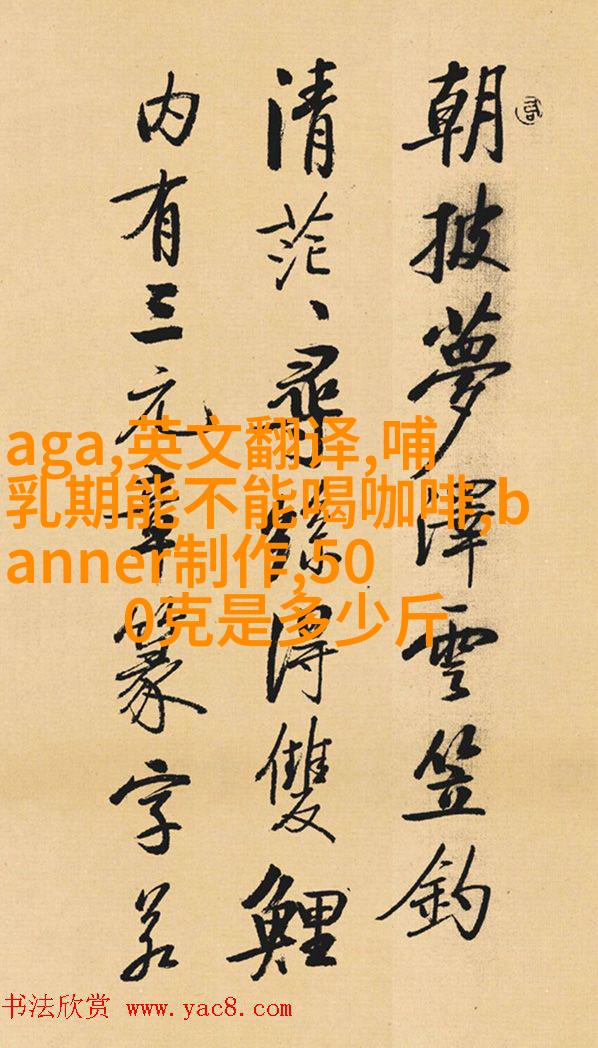 朝披夢澤雲笠釣
清茫、尋絲得雙鯉
内有三元章篆字若
aga,英文翻译,哺
乳期能不能喝咖啡,b
anner制作,50
0克是多少斤
书法欣赏 www.yac8.com